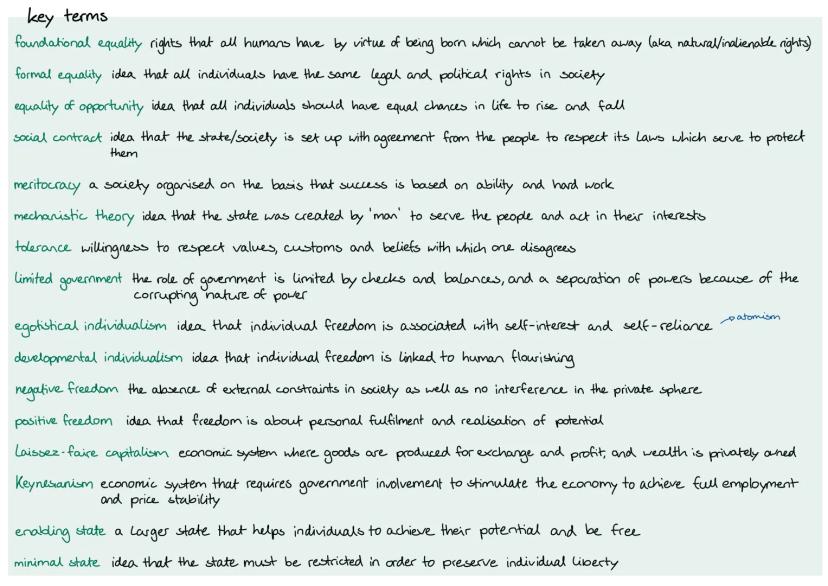 key terms
foundational equality rights that all humans have by virtue of being born which cannot be taken away (aka natural/inalienable rights)
formal equality idea that all individuals have the same legal and political rights in society
equality of opportunity idea that all individuals should have equal chances in life to rise and fall
social contract idea that the state/society is set up with agreement from the people to respect its laws which serve to protect
them
meritocracy a society organised on the basis that success is based on ability and hard work
mechanistic theory idea that the state was created by 'man' to serve the people and act in their interests
tolerance willingness to respect values, customs and beliefs with which one disagrees
limited government the role of government is limited by checks and balances, and a separation of powers because of the
corrupting nature of power
egotistical individualism idea that individual freedom is associated with self-interest and self-reliance atomism
developmental individualism idea that individual freedom is linked to human flourishing
negative freedom the absence of external constraints in society as well as no interference in the private sphere
positive freedom idea that freedom is about personal fulfilment and realisation of potential
Laissez-faire capitalism economic system where goods are produced for exchange and profit, and wealth is privately owned
Keynesianism economic system that requires government involvement to stimulate the economy to achieve full employment
and price stability
enabling state a larger state that helps individuals to achieve their potential and be free
minimal state idea that the state must be restricted in order to preserve individual liberty